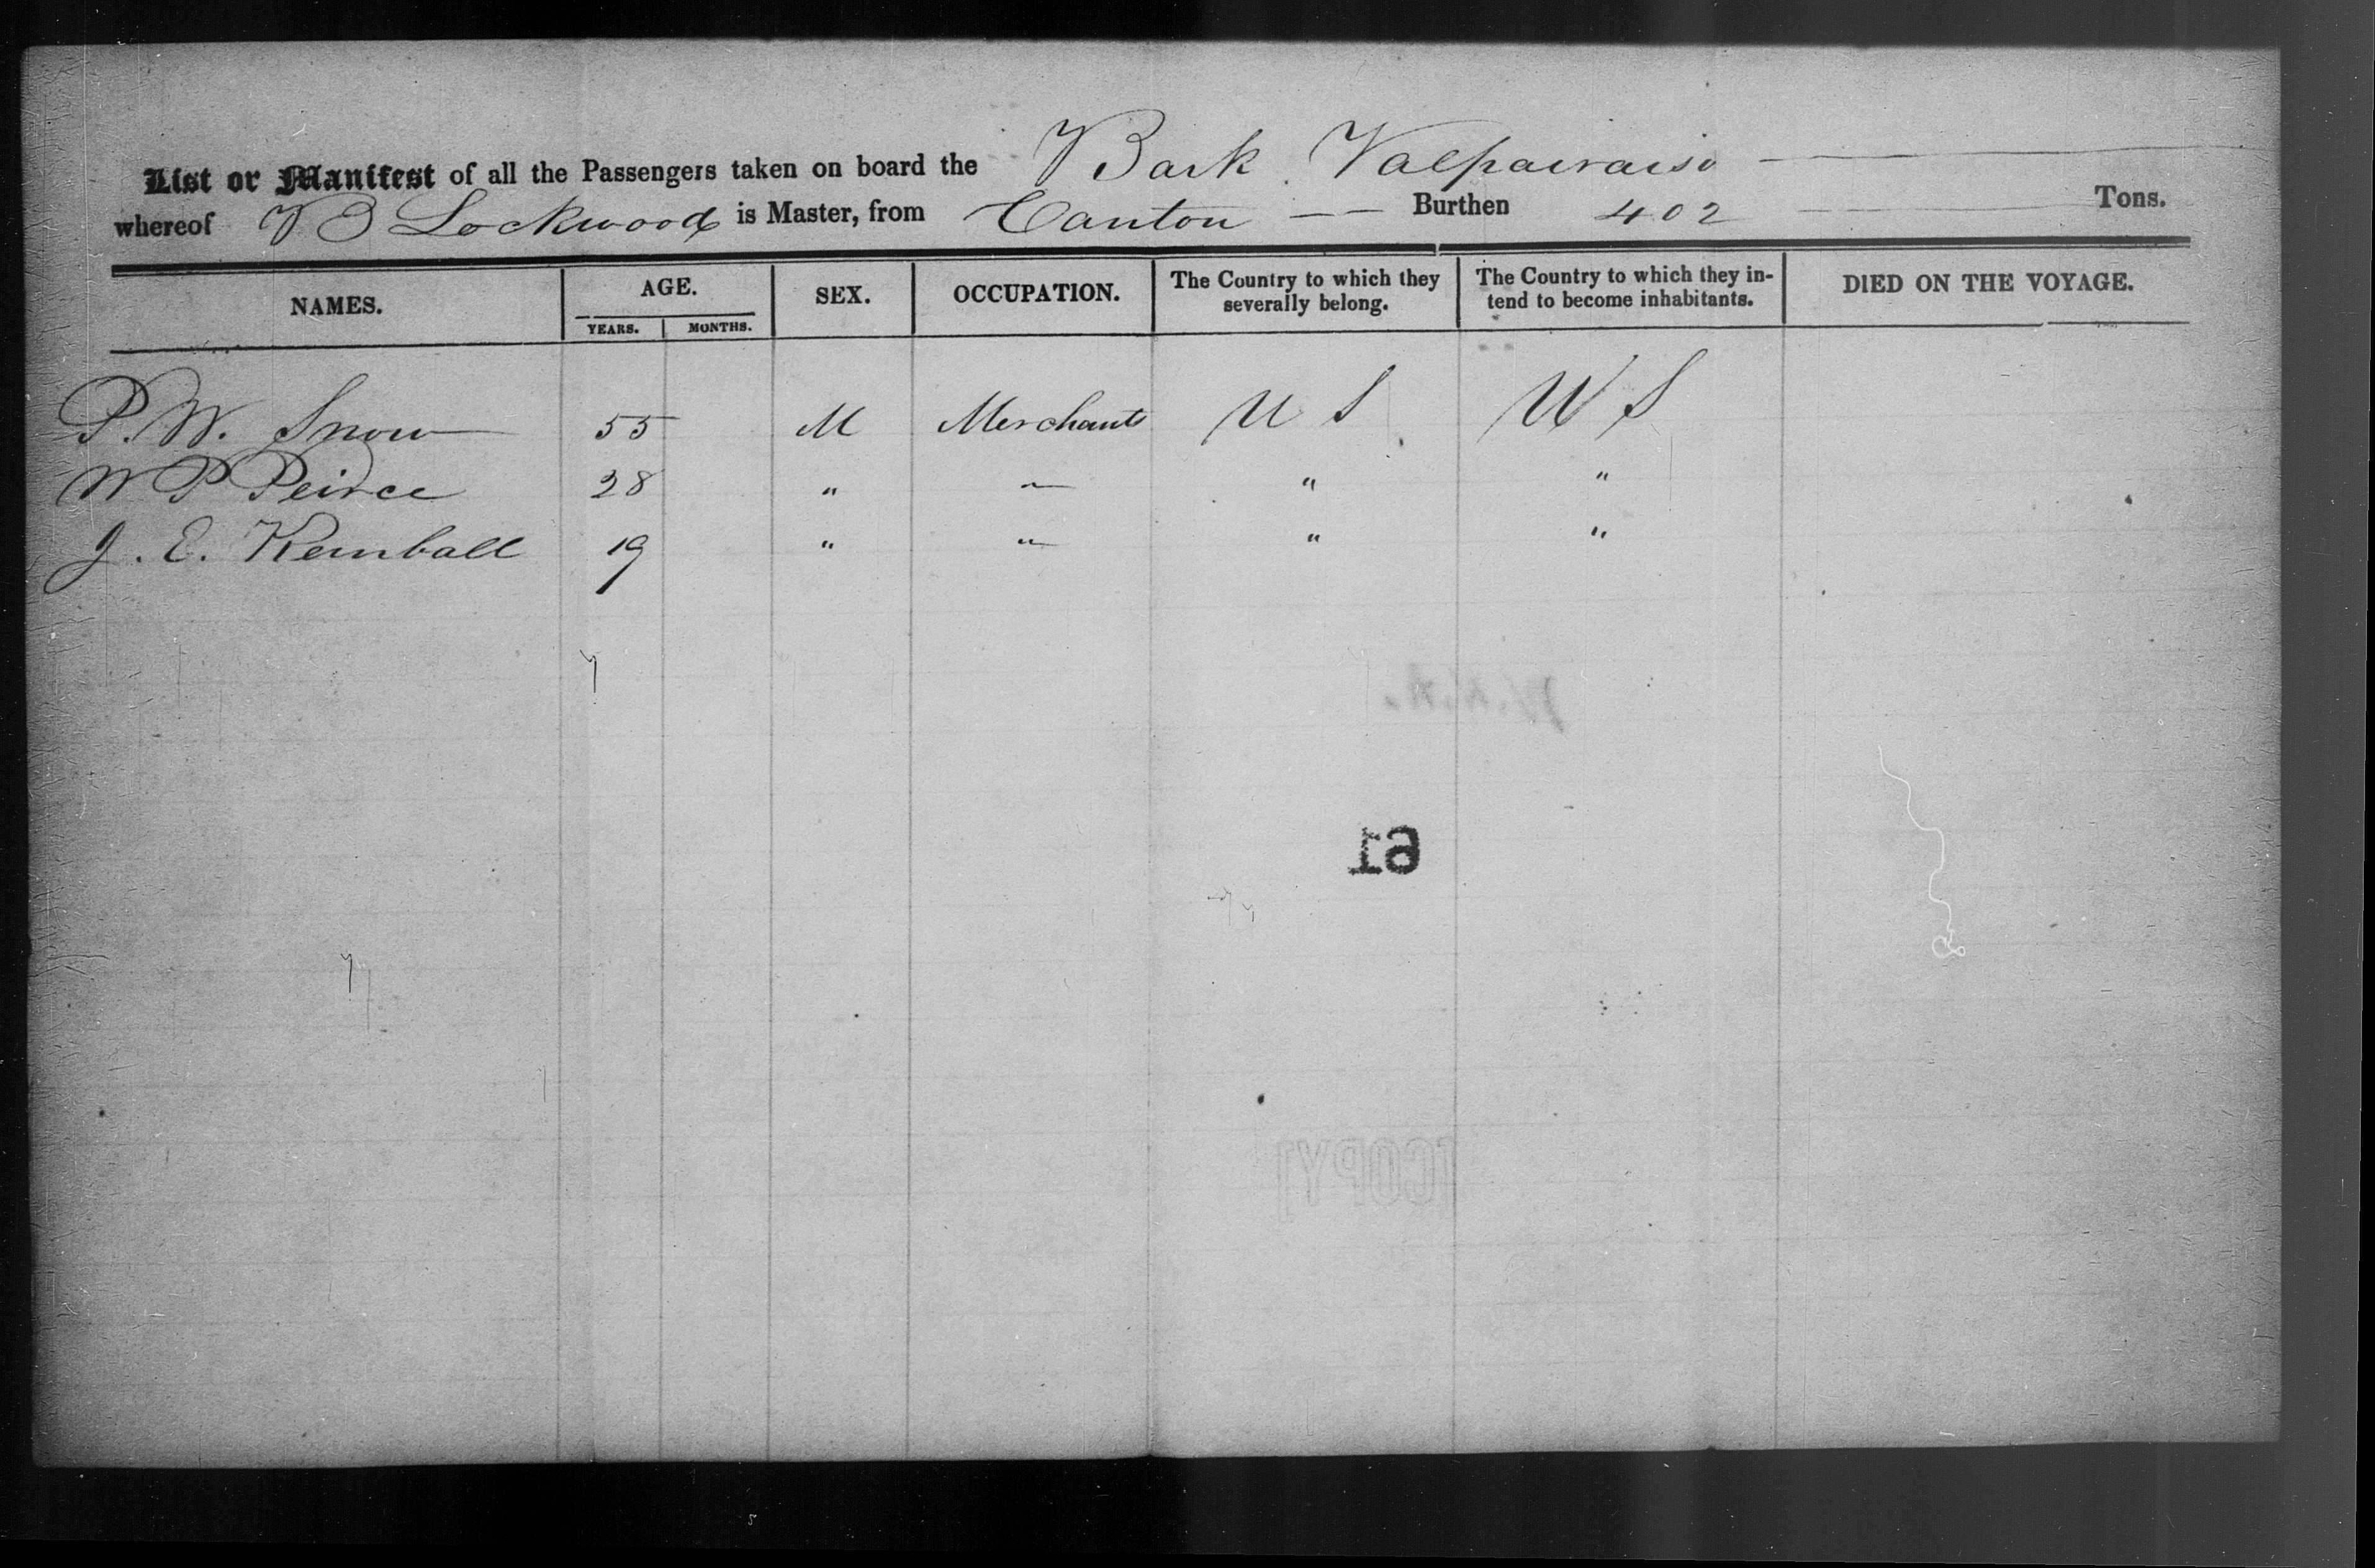 List or Manifest of all the Passengers taken on board the Bark Valparaiso
whereof B Lockwood is Master, from Canton Burthen 402 Tons.
NAMES. AGE. SEX. OCCUPATION. The Country to which they severally belong. The Country to which they in-tend to become inhabitants. DIED ON THE VOYAGE.
YEARS. MONTHS.
P. W. Snow 55 M Merchants U S U S
W P Peirce 28 " " " "
J. E. Kemball 19 " " " "
19
[COPY]